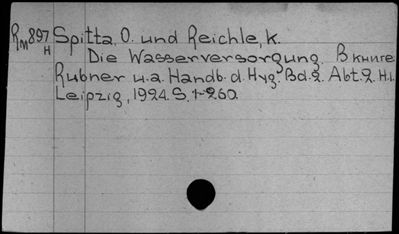 Rм897
н
Spitta, O. und Reichle, K.
Die Wasserversorgung. В книге
Rubner u.a. Handb. d. Hyg. Bd. 2. Abt. 2. H.1.
Leipzig, 1924. S. 1-260.